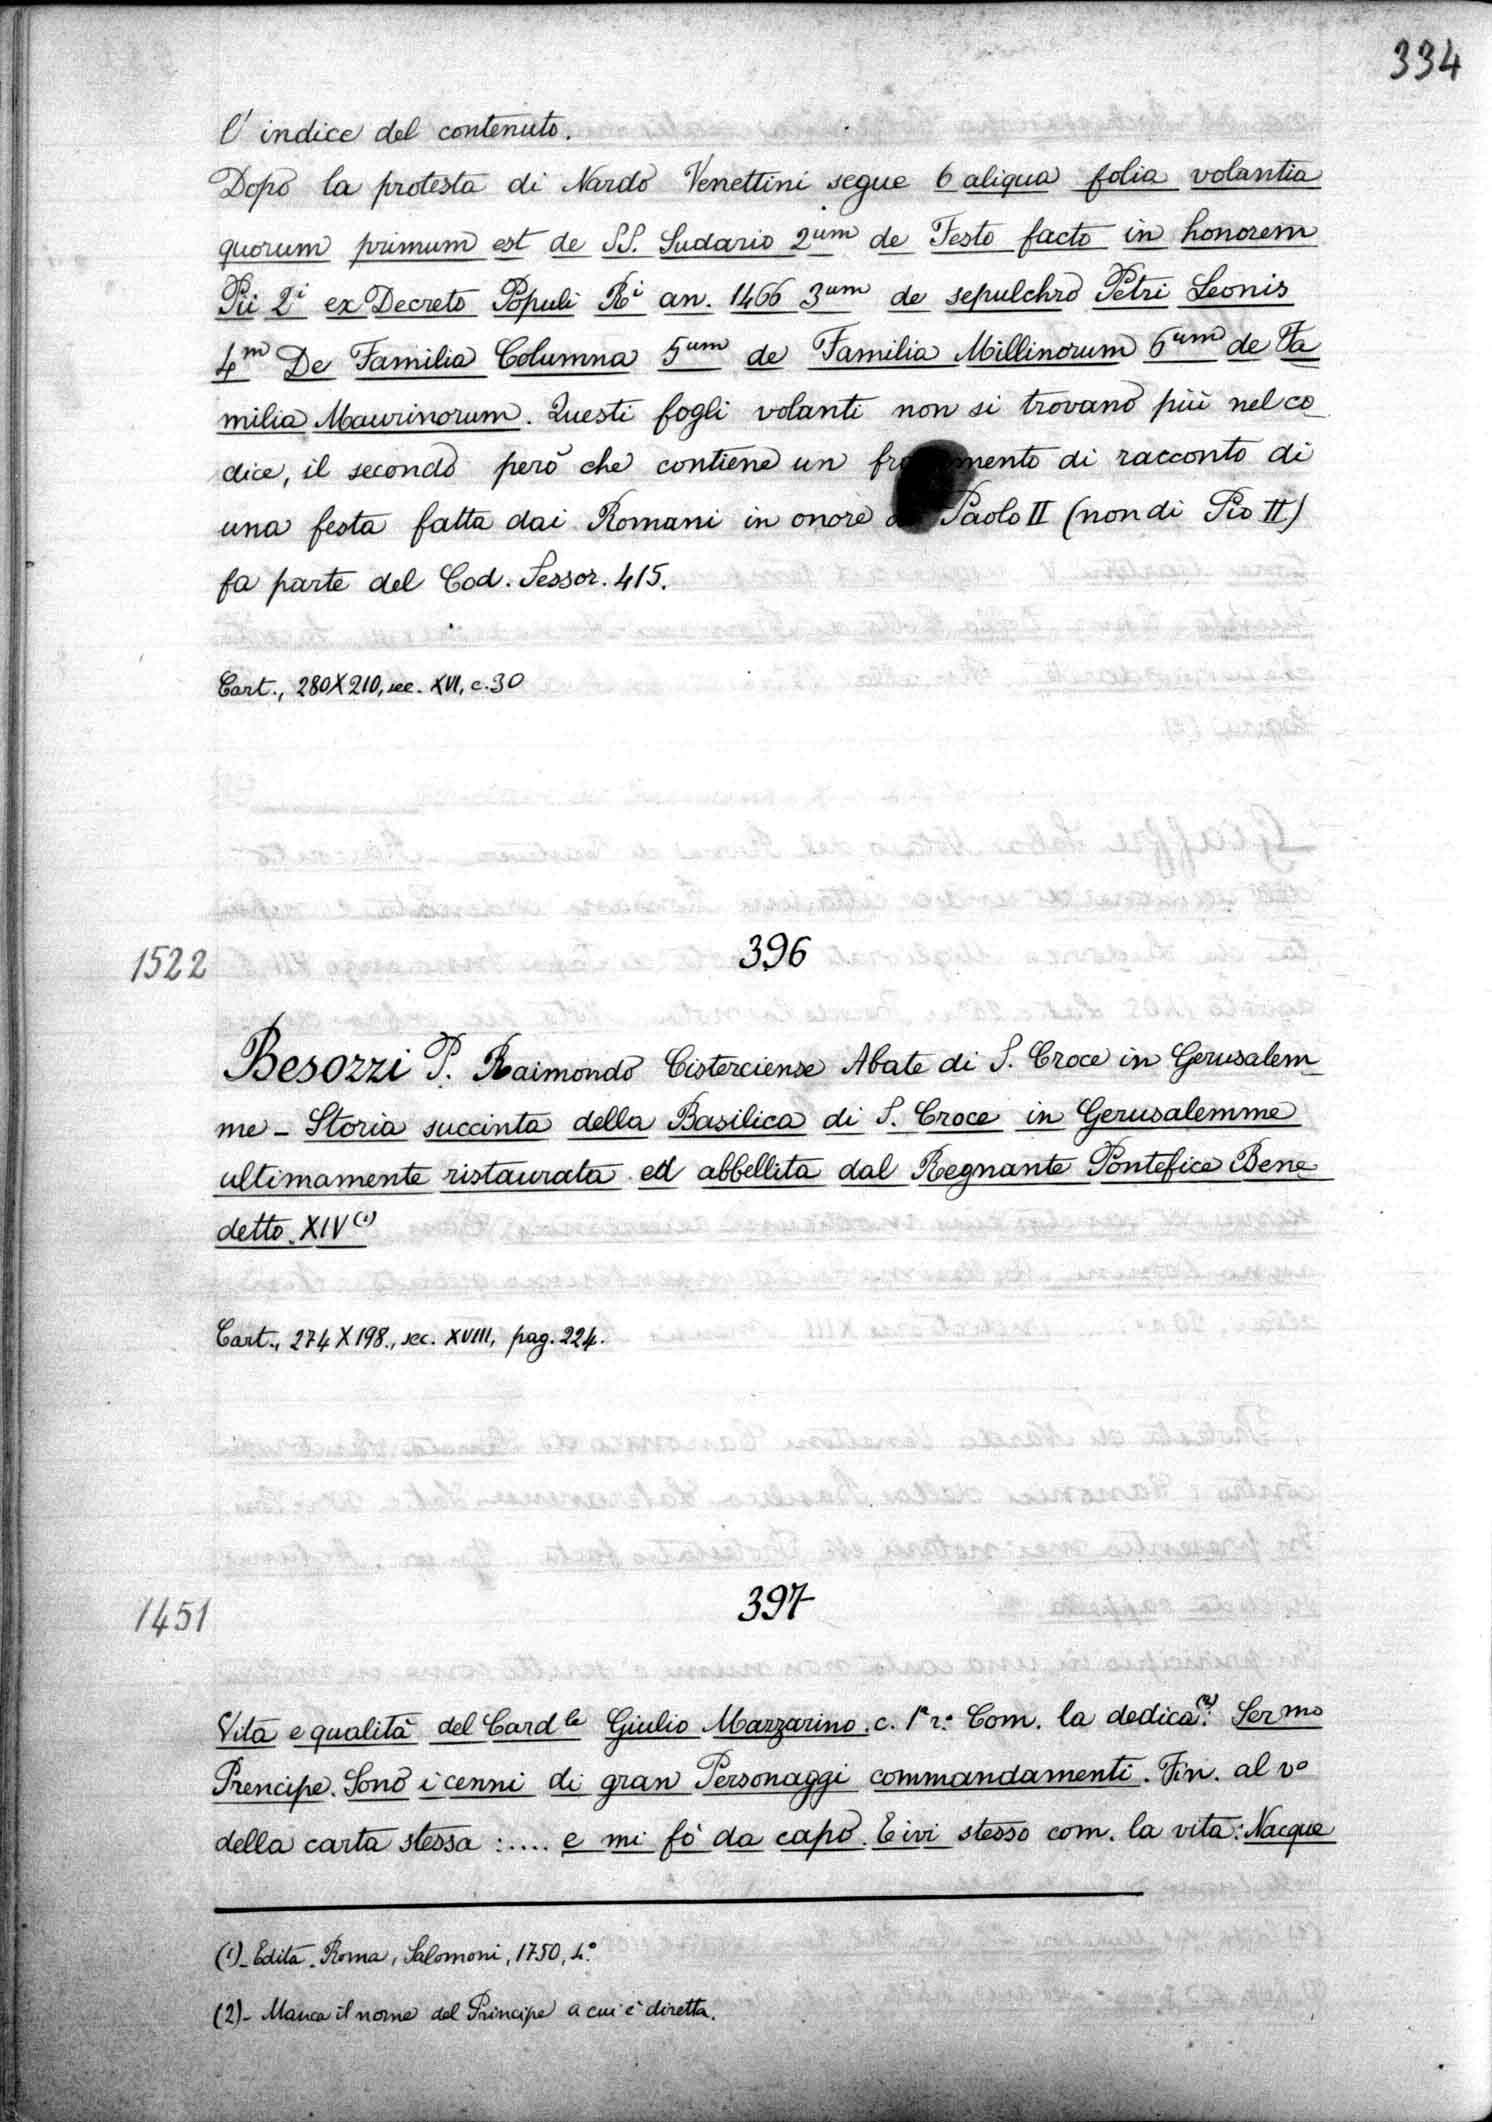 334
l' indice del contenuto.
Dopo la protesta di Nardo Venettini segue 6 aliqua folia volantia
quorum primum est de SS. Sudario 2um de Festo facto in honorem
Pii 2i ex Decreto Populi Ri an. 1466 3um de sepulchro Petri Leonis
4m De Familia Columna 5um de Familia Millinorum 6um de Fa
milia Maurinorum. Questi fogli volanti non si trovano più nel co
dice, il secondo però che contiene un mento di racconto di
una festa fatta dai Romani in onore Paolo II (non di Pio II)
fa parte del Cod. Sessor. 415.
Cart., 280X210, sec. XVI, c. 30
1522
396
Besozzi P. Raimondo Cisterciense Abate di S. Croce in Gerusalem
me - Storia succinta della Basilica di S. Croce in Gerusalemme
ultimamente ristaurata ed abbellita dal Regnante Pontefice Bene
detto XIV (1)
Cart., 274 X 198., sec. XVIII, pag. 224.
1451
397
Vita e qualità del Card le Giulio Mazzarino. c. 1a r.o Com. la dedica (2): Ser mo
Prencipe. Sono i cenni di gran Personaggi commandamenti. Fin. al vo
della carta stessa :.... e mi fò da capo. E ivi stesso com. la vita: Nacque
(1)- Edita. Roma, Salomoni, 1750, 4.o
(2)- Manca il nome del Principe a cui è diretta.